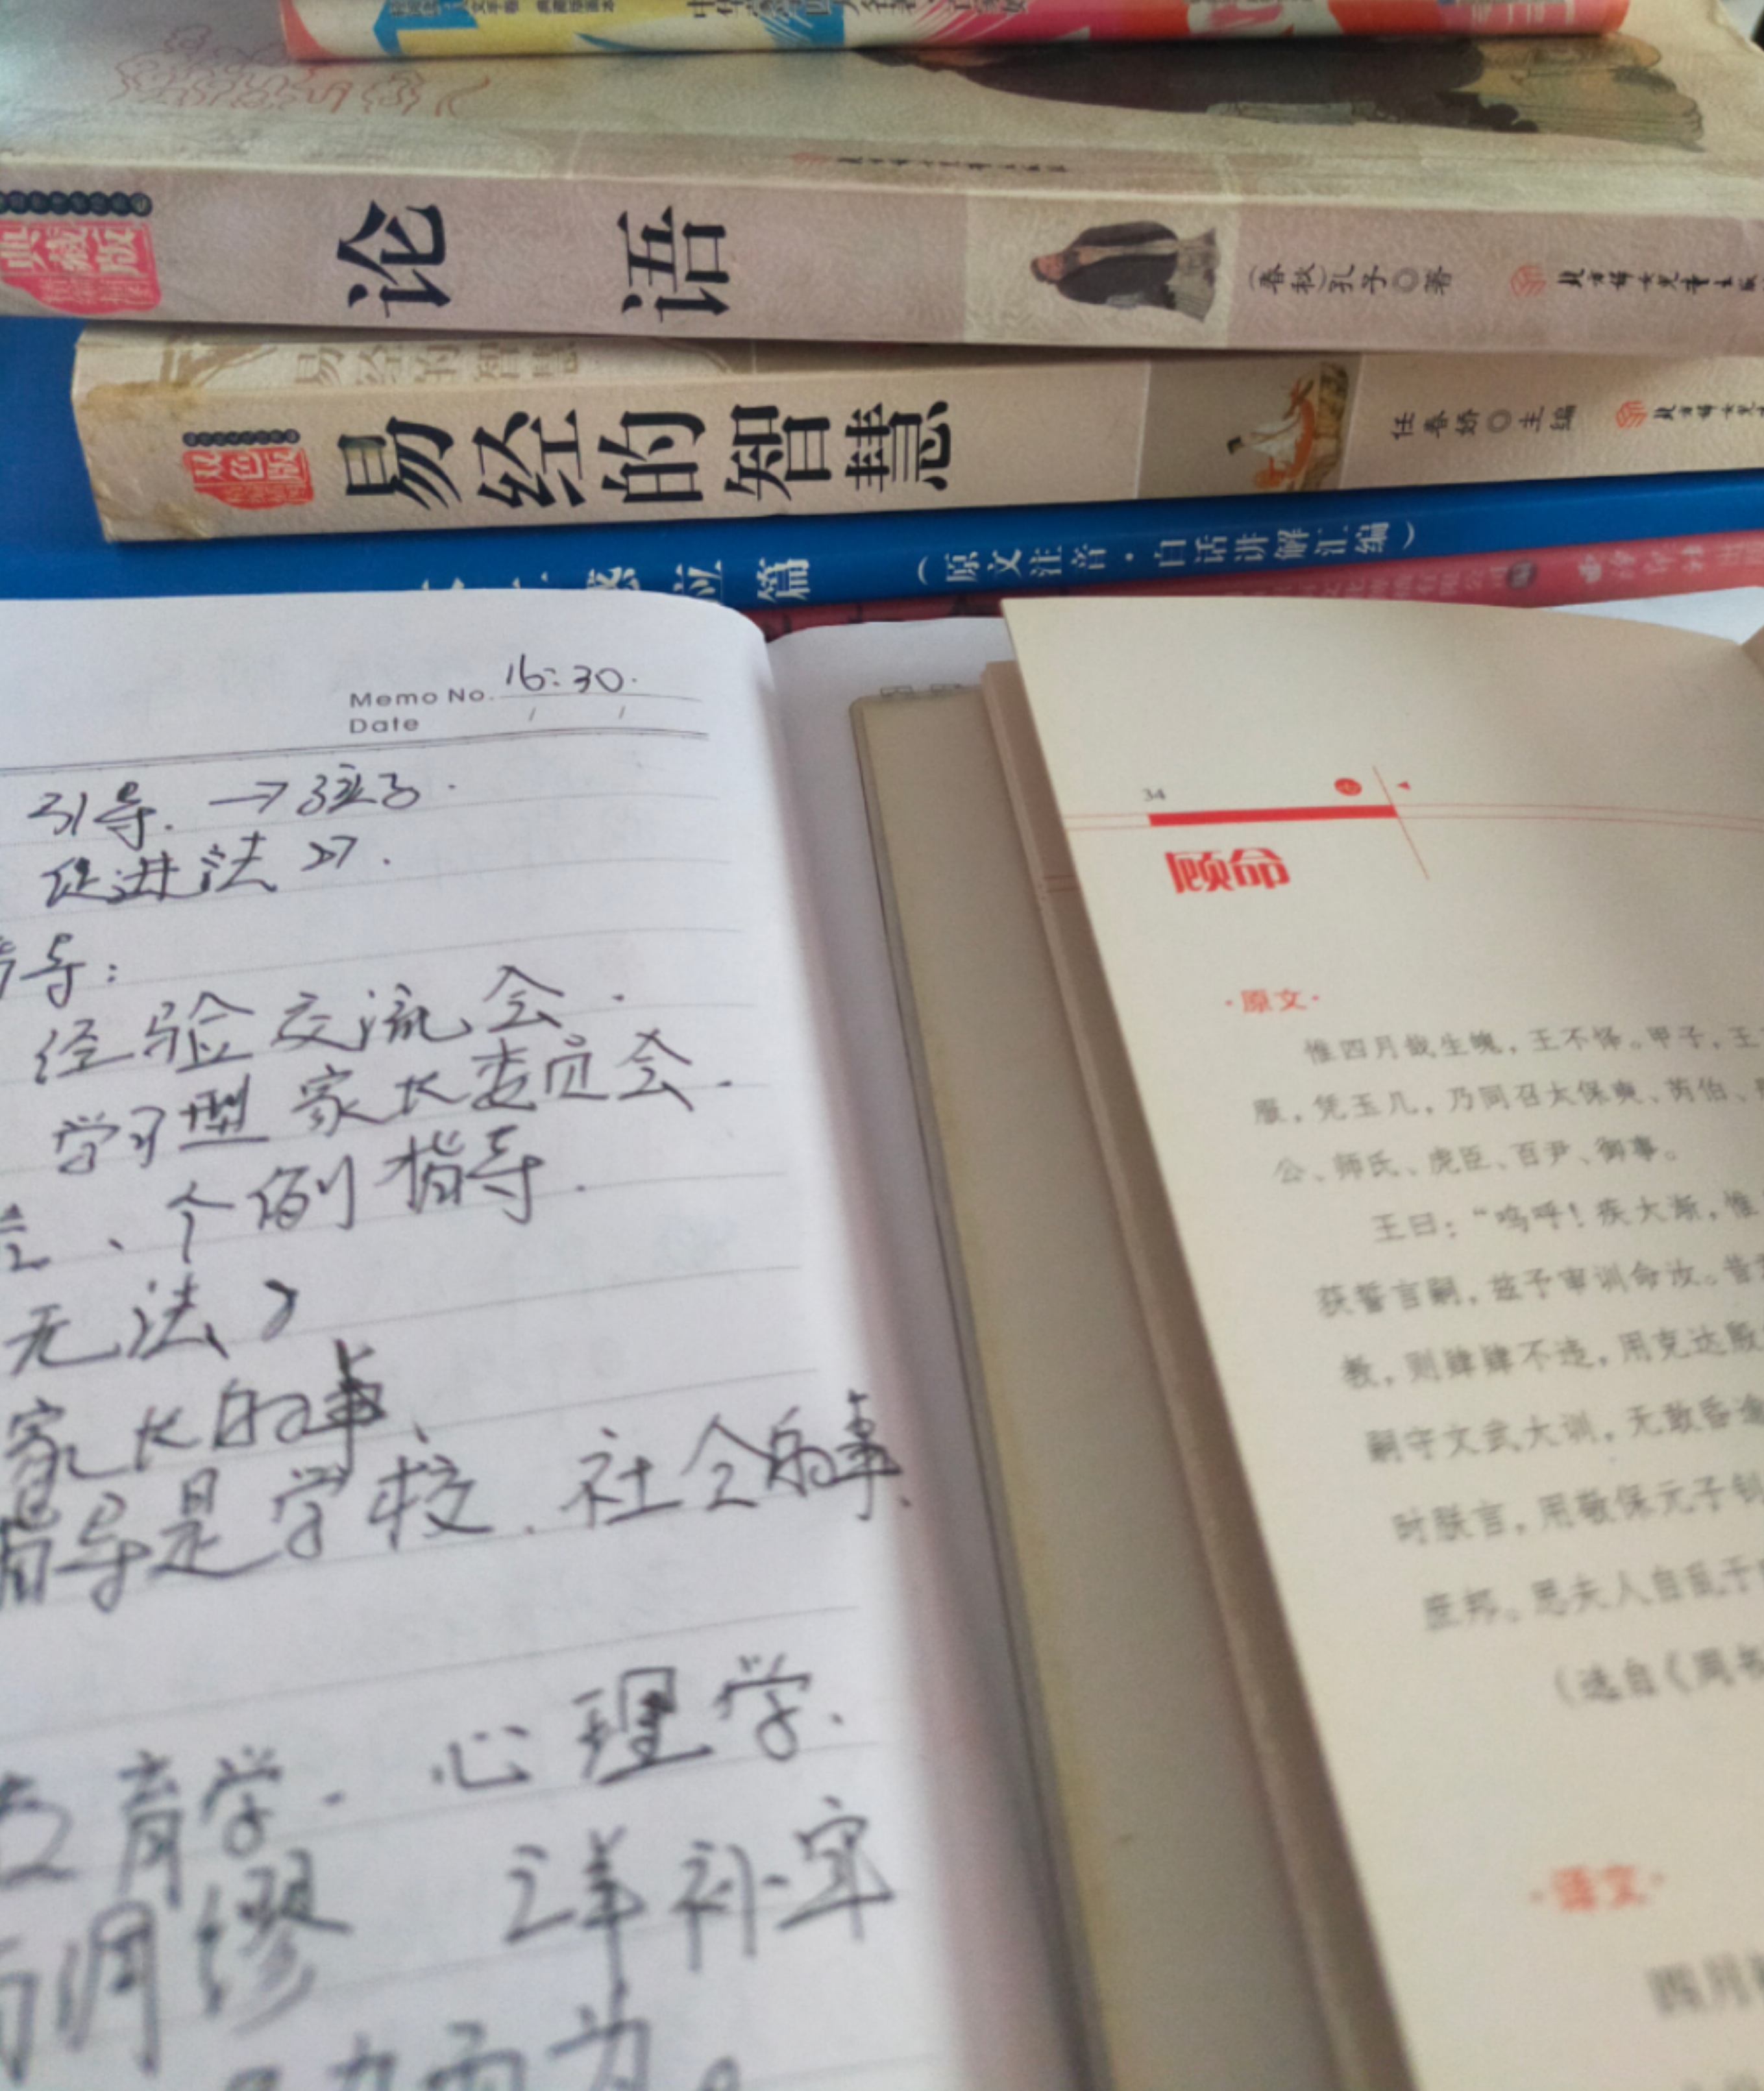 典藏版
论语
（春秋）孔子◎著
北方妇女儿童出版
易经的智慧
双色版
易经的智慧
任春娇◎主编
北方妇女儿
感应篇
（原文注音·白话讲解汇编）
Memo No. 16:30.
Date / /
引导. → 孩子.
促进法
导:
经验交流会.
学习型家长委员会.
、个例指导.
无法
家长的事、
指导是学校.社会的事、
育学. 心理学.
绸缪
34
顾命
·原文·
惟四月哉生魄，王不怿。甲子，王
服，凭玉几，乃同召太保奭、芮伯、
公、师氏、虎臣、百尹、御事。
王曰：“呜呼！疾大渐，惟
获誓言嗣，兹予审训命汝。昔
教，则肄肄不违，用克达殷
嗣守文武大训，无敢昏逾
时朕言，用敬保元子钊
庶邦。思夫人自乱于
（选自《周书
·译文·
四月